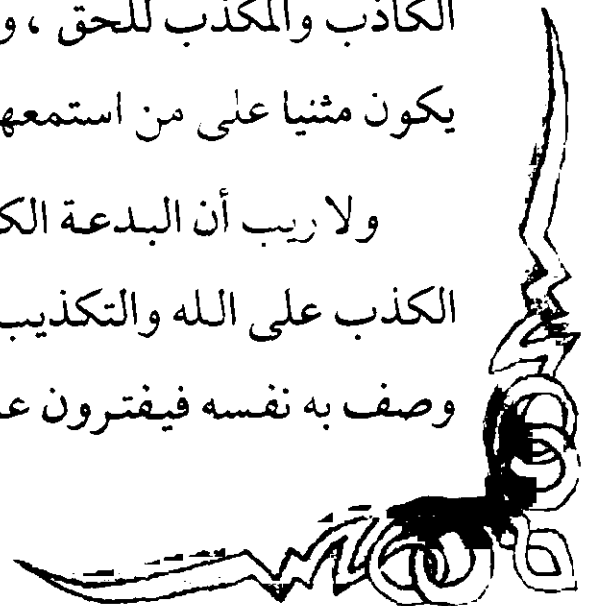 الكاذب والمكذب للحق ، و
يكون مثنيا على من استمعها
ولا ريب أن البدعة الك
الكذب على الله والتكذيب
وصف به نفسه فيفترون عـ